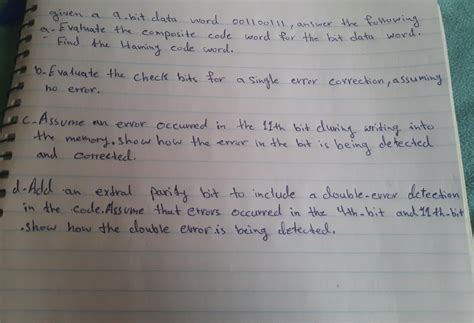 given a 9-bit data word 001100111, answer the following
a- Evaluate the composite code word for the bit data word.
- Find the Hamming code word.
b- Evaluate the check bits for a single error correction, assuming
no error.
c- Assume an error occurred in the 11th bit during writing into
the memory. show how the error in the bit is being detected
and corrected.
d- Add an extral parity bit to include a double-error detection
in the code. Assume that errors occurred in the 4th-bit and 11th-bit
. show how the double error is being detected.